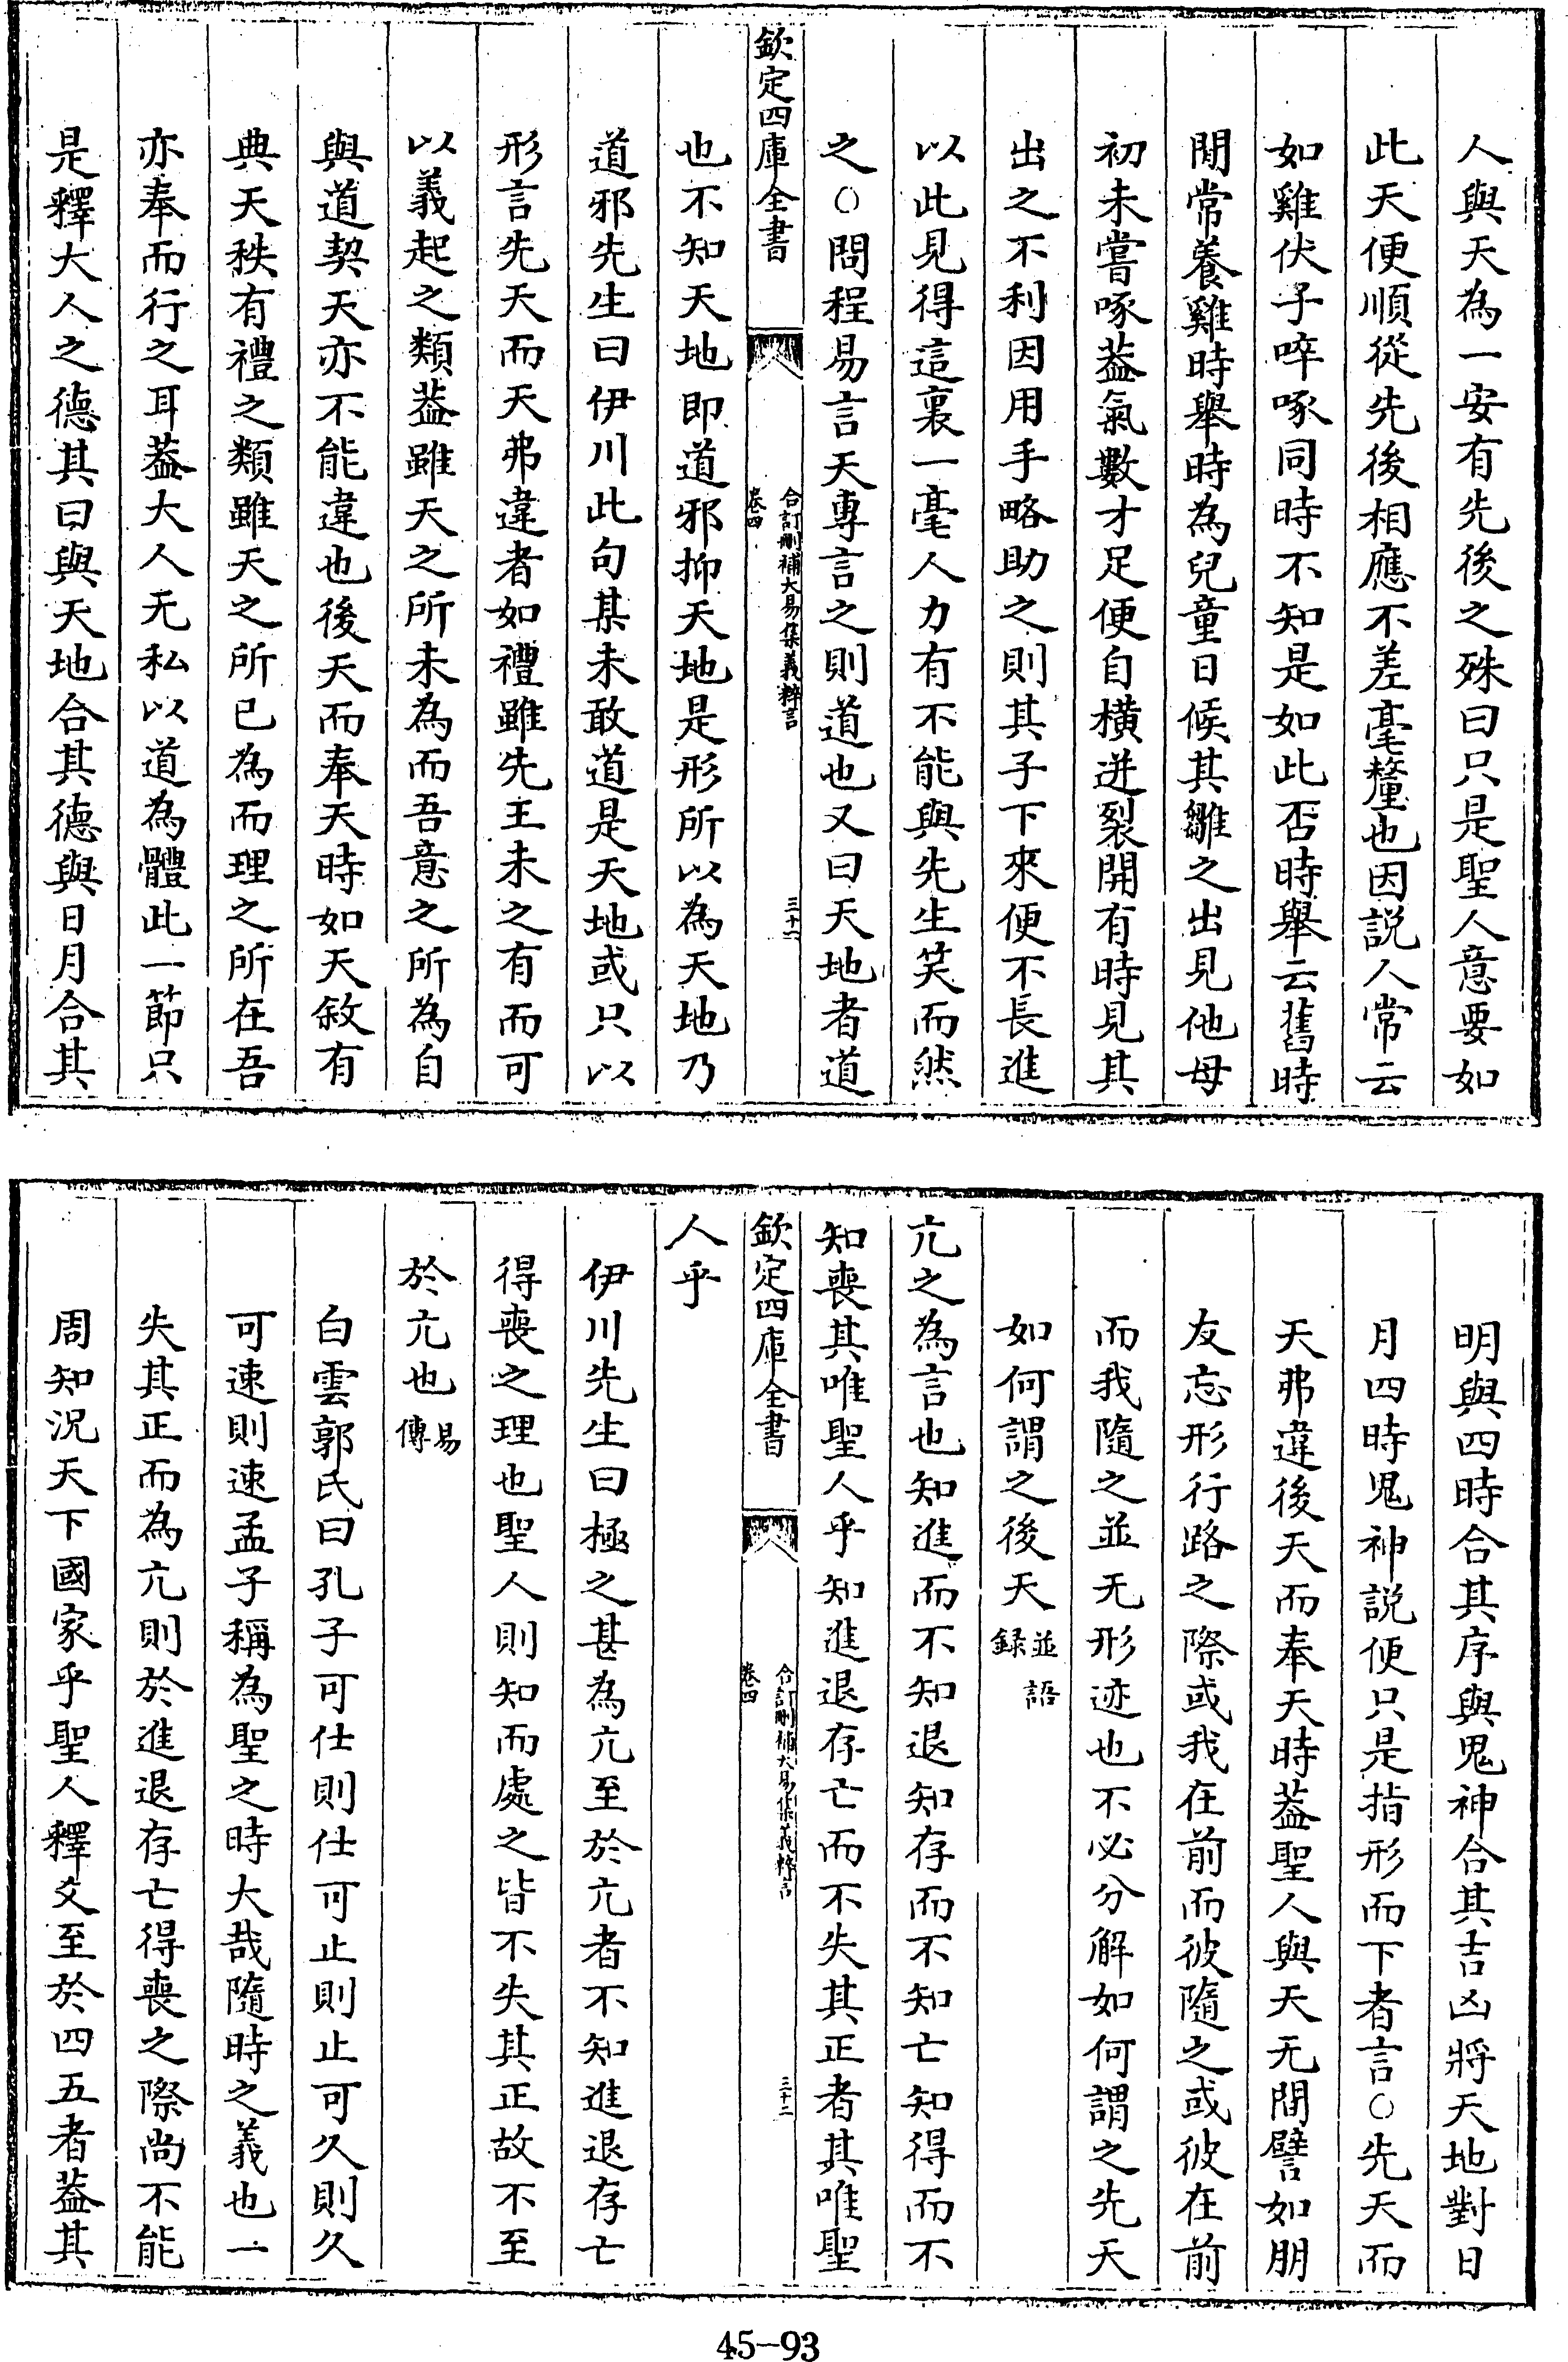 人與天為一安有先後之殊曰只是聖人意要如
此天便順從先後相應不差毫釐也因説人常云
如雞伏子啐啄同時不知是如此否時舉云舊時
閒常養雞時舉時為兒童日候其雛之出見他母
初未嘗啄葢氣數才足便自横迸裂開有時見其
出之不利因用手略助之則其子下來便不長進
以此見得這裏一毫人力有不能與先生笑而然
之○問程易言天專言之則道也又曰天地者道
欽定四庫全書
合訂刪補大易集義粹言
卷四
三十二
也不知天地即道邪抑天地是形所以為天地乃
道邪先生曰伊川此句某未敢道是天地或只以
形言先天而天弗違者如禮雖先王未之有而可
以義起之類葢雖天之所未為而吾意之所為自
與道契天亦不能違也後天而奉天時如天敘有
典天秩有禮之類雖天之所已為而理之所在吾
亦奉而行之耳葢大人无私以道為體此一節只
是釋大人之德其曰與天地合其德與日月合其
明與四時合其序與鬼神合其吉凶將天地對日
月四時鬼神説便只是指形而下者言○先天而
天弗違後天而奉天時葢聖人與天无間譬如朋
友忘形行路之際或我在前而彼隨之或彼在前
而我隨之並无形迹也不必分解如何謂之先天
如何謂之後天並語録
亢之為言也知進而不知退知存而不知亡知得而不
知喪其唯聖人乎知進退存亡而不失其正者其唯聖
欽定四庫全書
合訂刪補大易集義粹言
卷四
三十二
人乎
伊川先生曰極之甚為亢至於亢者不知進退存亡
得喪之理也聖人則知而處之皆不失其正故不至
於亢也易傳
白雲郭氏曰孔子可仕則仕可止則止可久則久
可速則速孟子稱為聖之時大哉隨時之義也一
失其正而為亢則於進退存亡得喪之際尚不能
周知況天下國家乎聖人釋爻至於四五者葢其
45-93